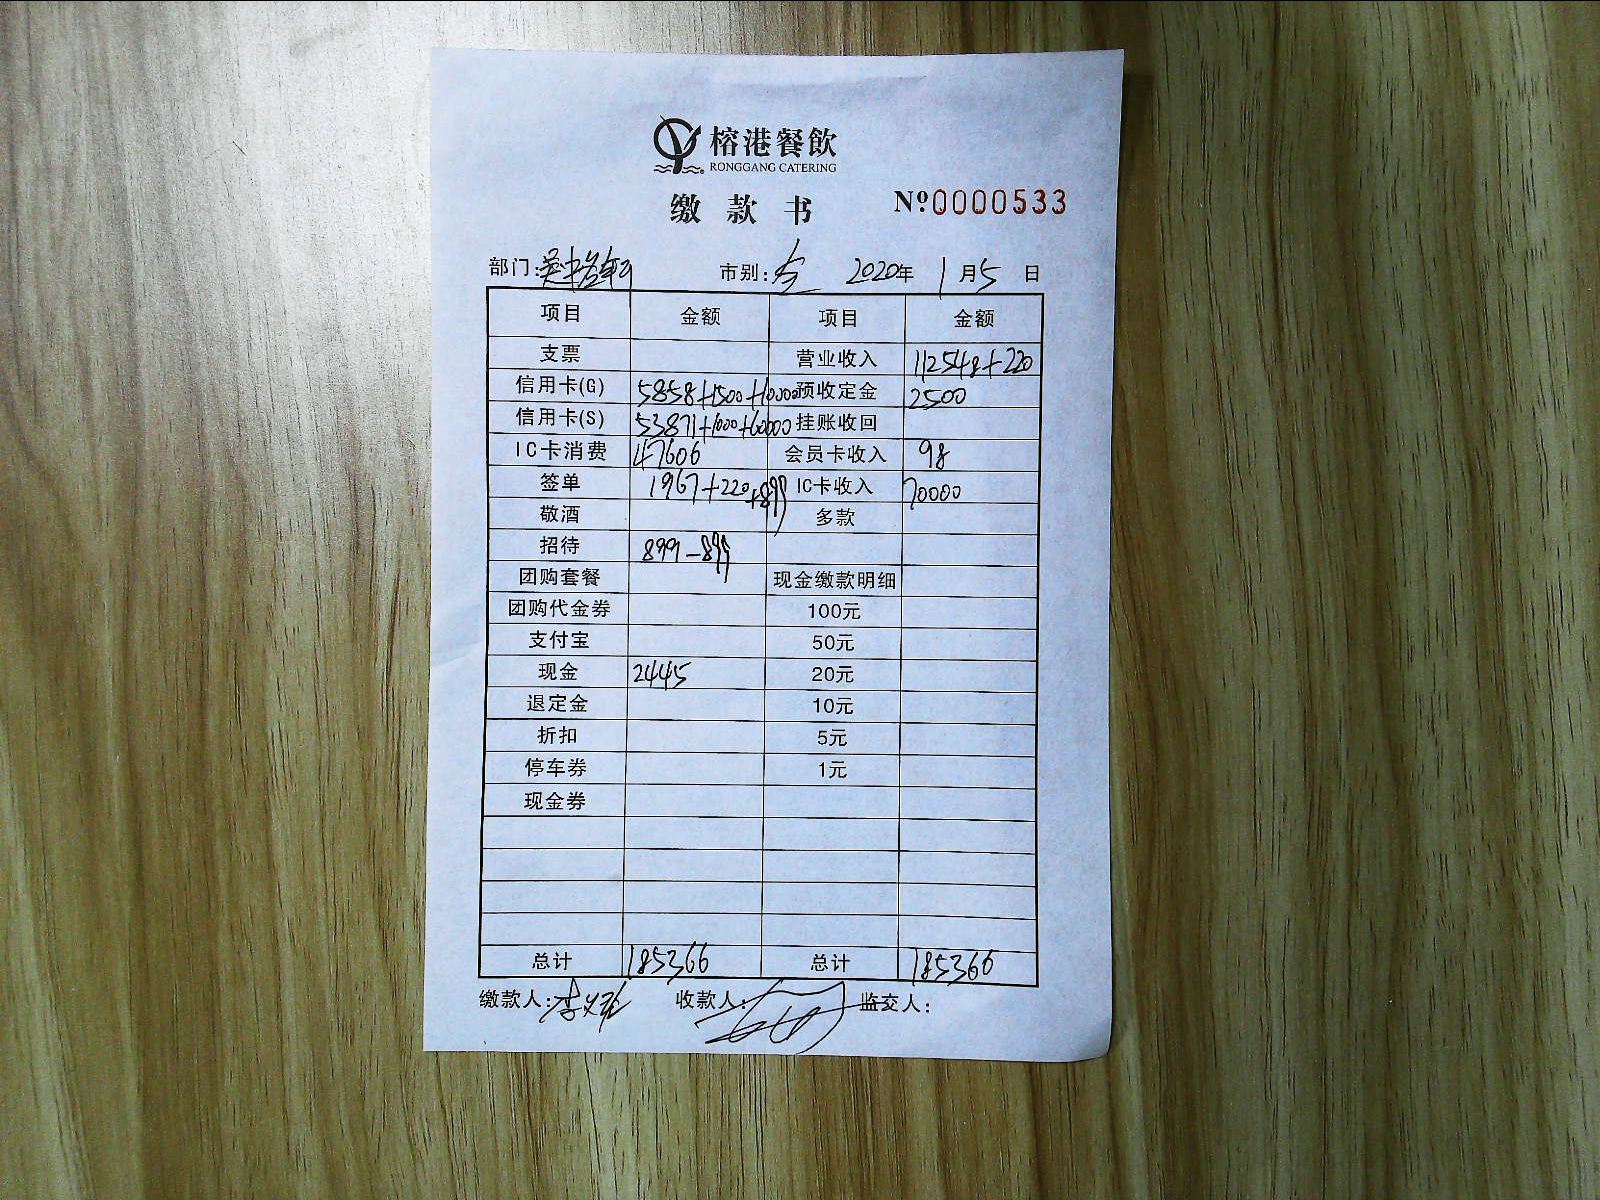 榕港餐飲
RONGGANG CATERING
缴款书 Nº0000533
部门: 市别:全 2020年 1月5日
项目 金额 项目 金额
支票 营业收入 112548+220
信用卡(G) 5858+1500+10000 预收定金 2500
信用卡(S) 53871+1000+60000 挂账收回
IC卡消费 47606 会员卡收入 98
签单 1967+220+899 IC卡收入 70000
敬酒 多款
招待 899-899
团购套餐 现金缴款明细
团购代金券 100元
支付宝 50元
现金 2445 20元
退定金 10元
折扣 5元
停车券 1元
现金券
总计 185366 总计 185366
缴款人: 收款人: 监交人: